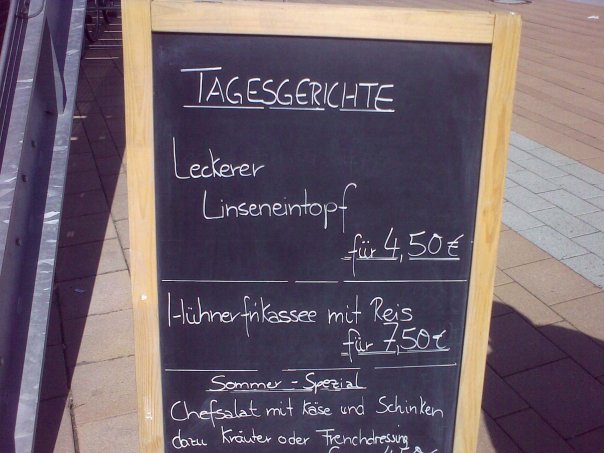 TAGESGERICHTE
Leckerer
Linseneintopf
für 4,50 €
Hühnerfrikassee mit Reis
für 7,50 €
Sommer - Spezial
Chefsalat mit Käse und Schinken
dazu Kräuter oder Frenchdressing